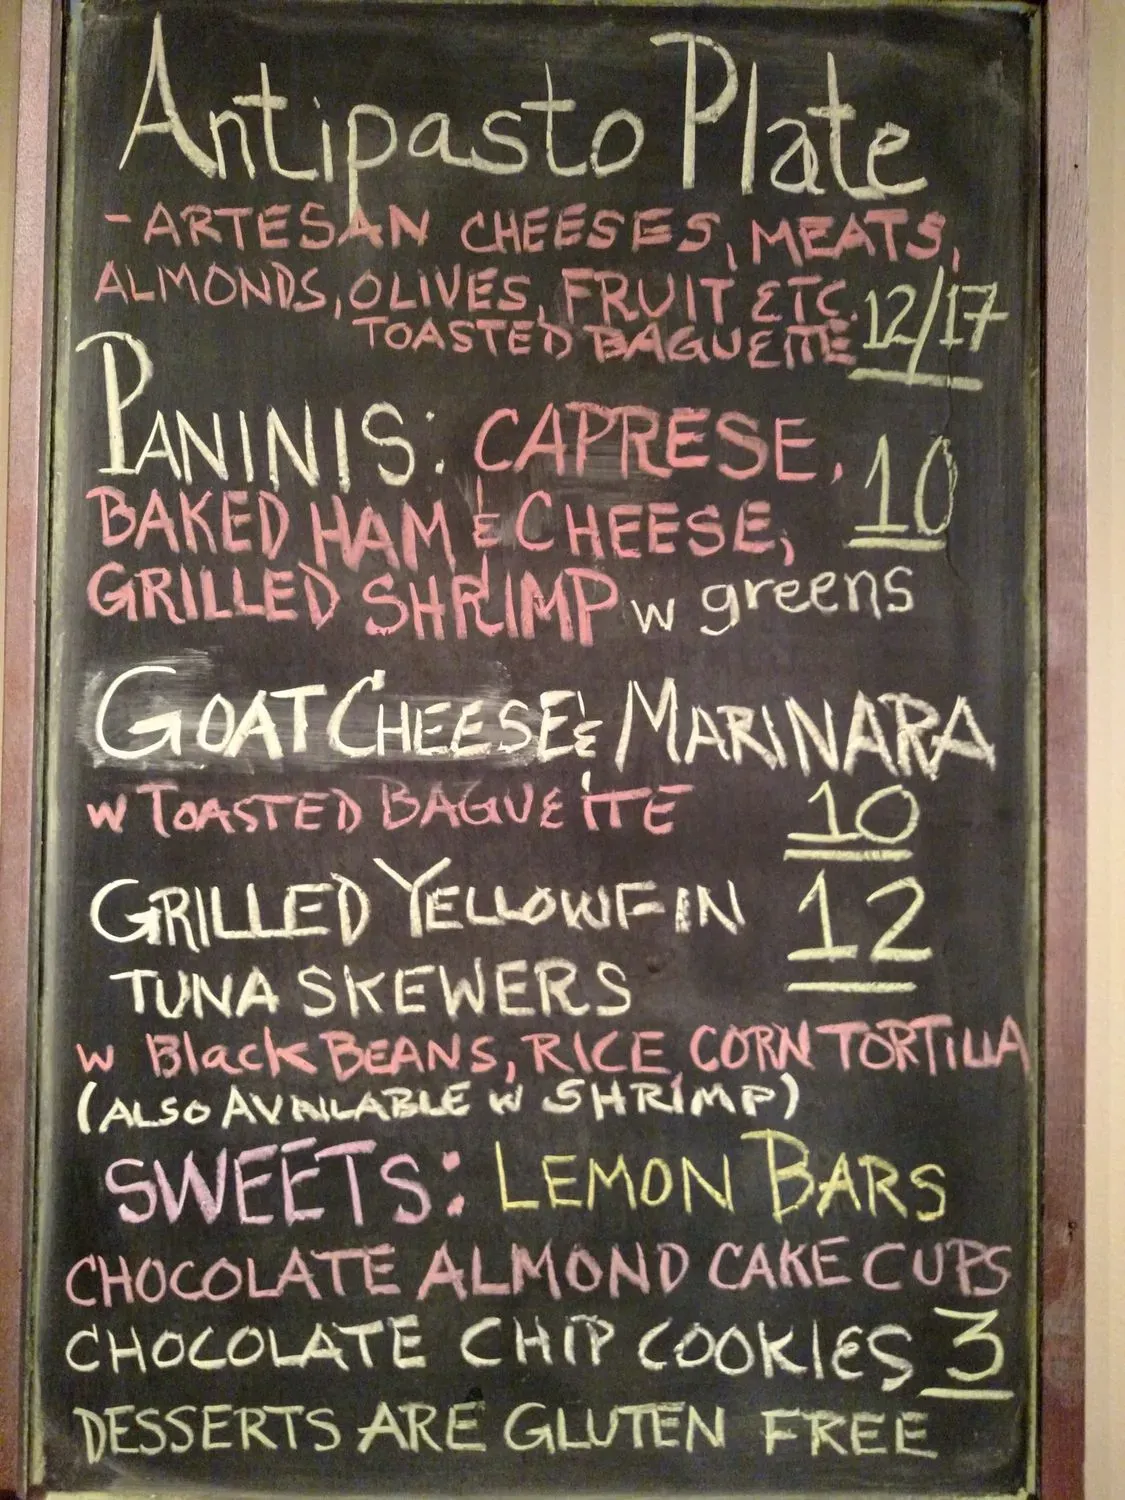 Antipasto Plate
- ARTESAN CHEESES, MEATS,
ALMONDS, OLIVES, FRUIT ETC.
TOASTED BAGUETTE 12/17
PANINIS: CAPRESE, 10
BAKED HAM & CHEESE,
GRILLED SHRIMP w greens
GOAT CHEESE & MARINARA
w TOASTED BAGUETTE 10
GRILLED YELLOWFIN 12
TUNA SKEWERS
w Black BEANS, RICE, CORN TORTILLA
(ALSO AVAILABLE w SHRIMP)
SWEETS: LEMON BARS
CHOCOLATE ALMOND CAKE CUPS
CHOCOLATE CHIP COOKIES 3
DESSERTS ARE GLUTEN FREE